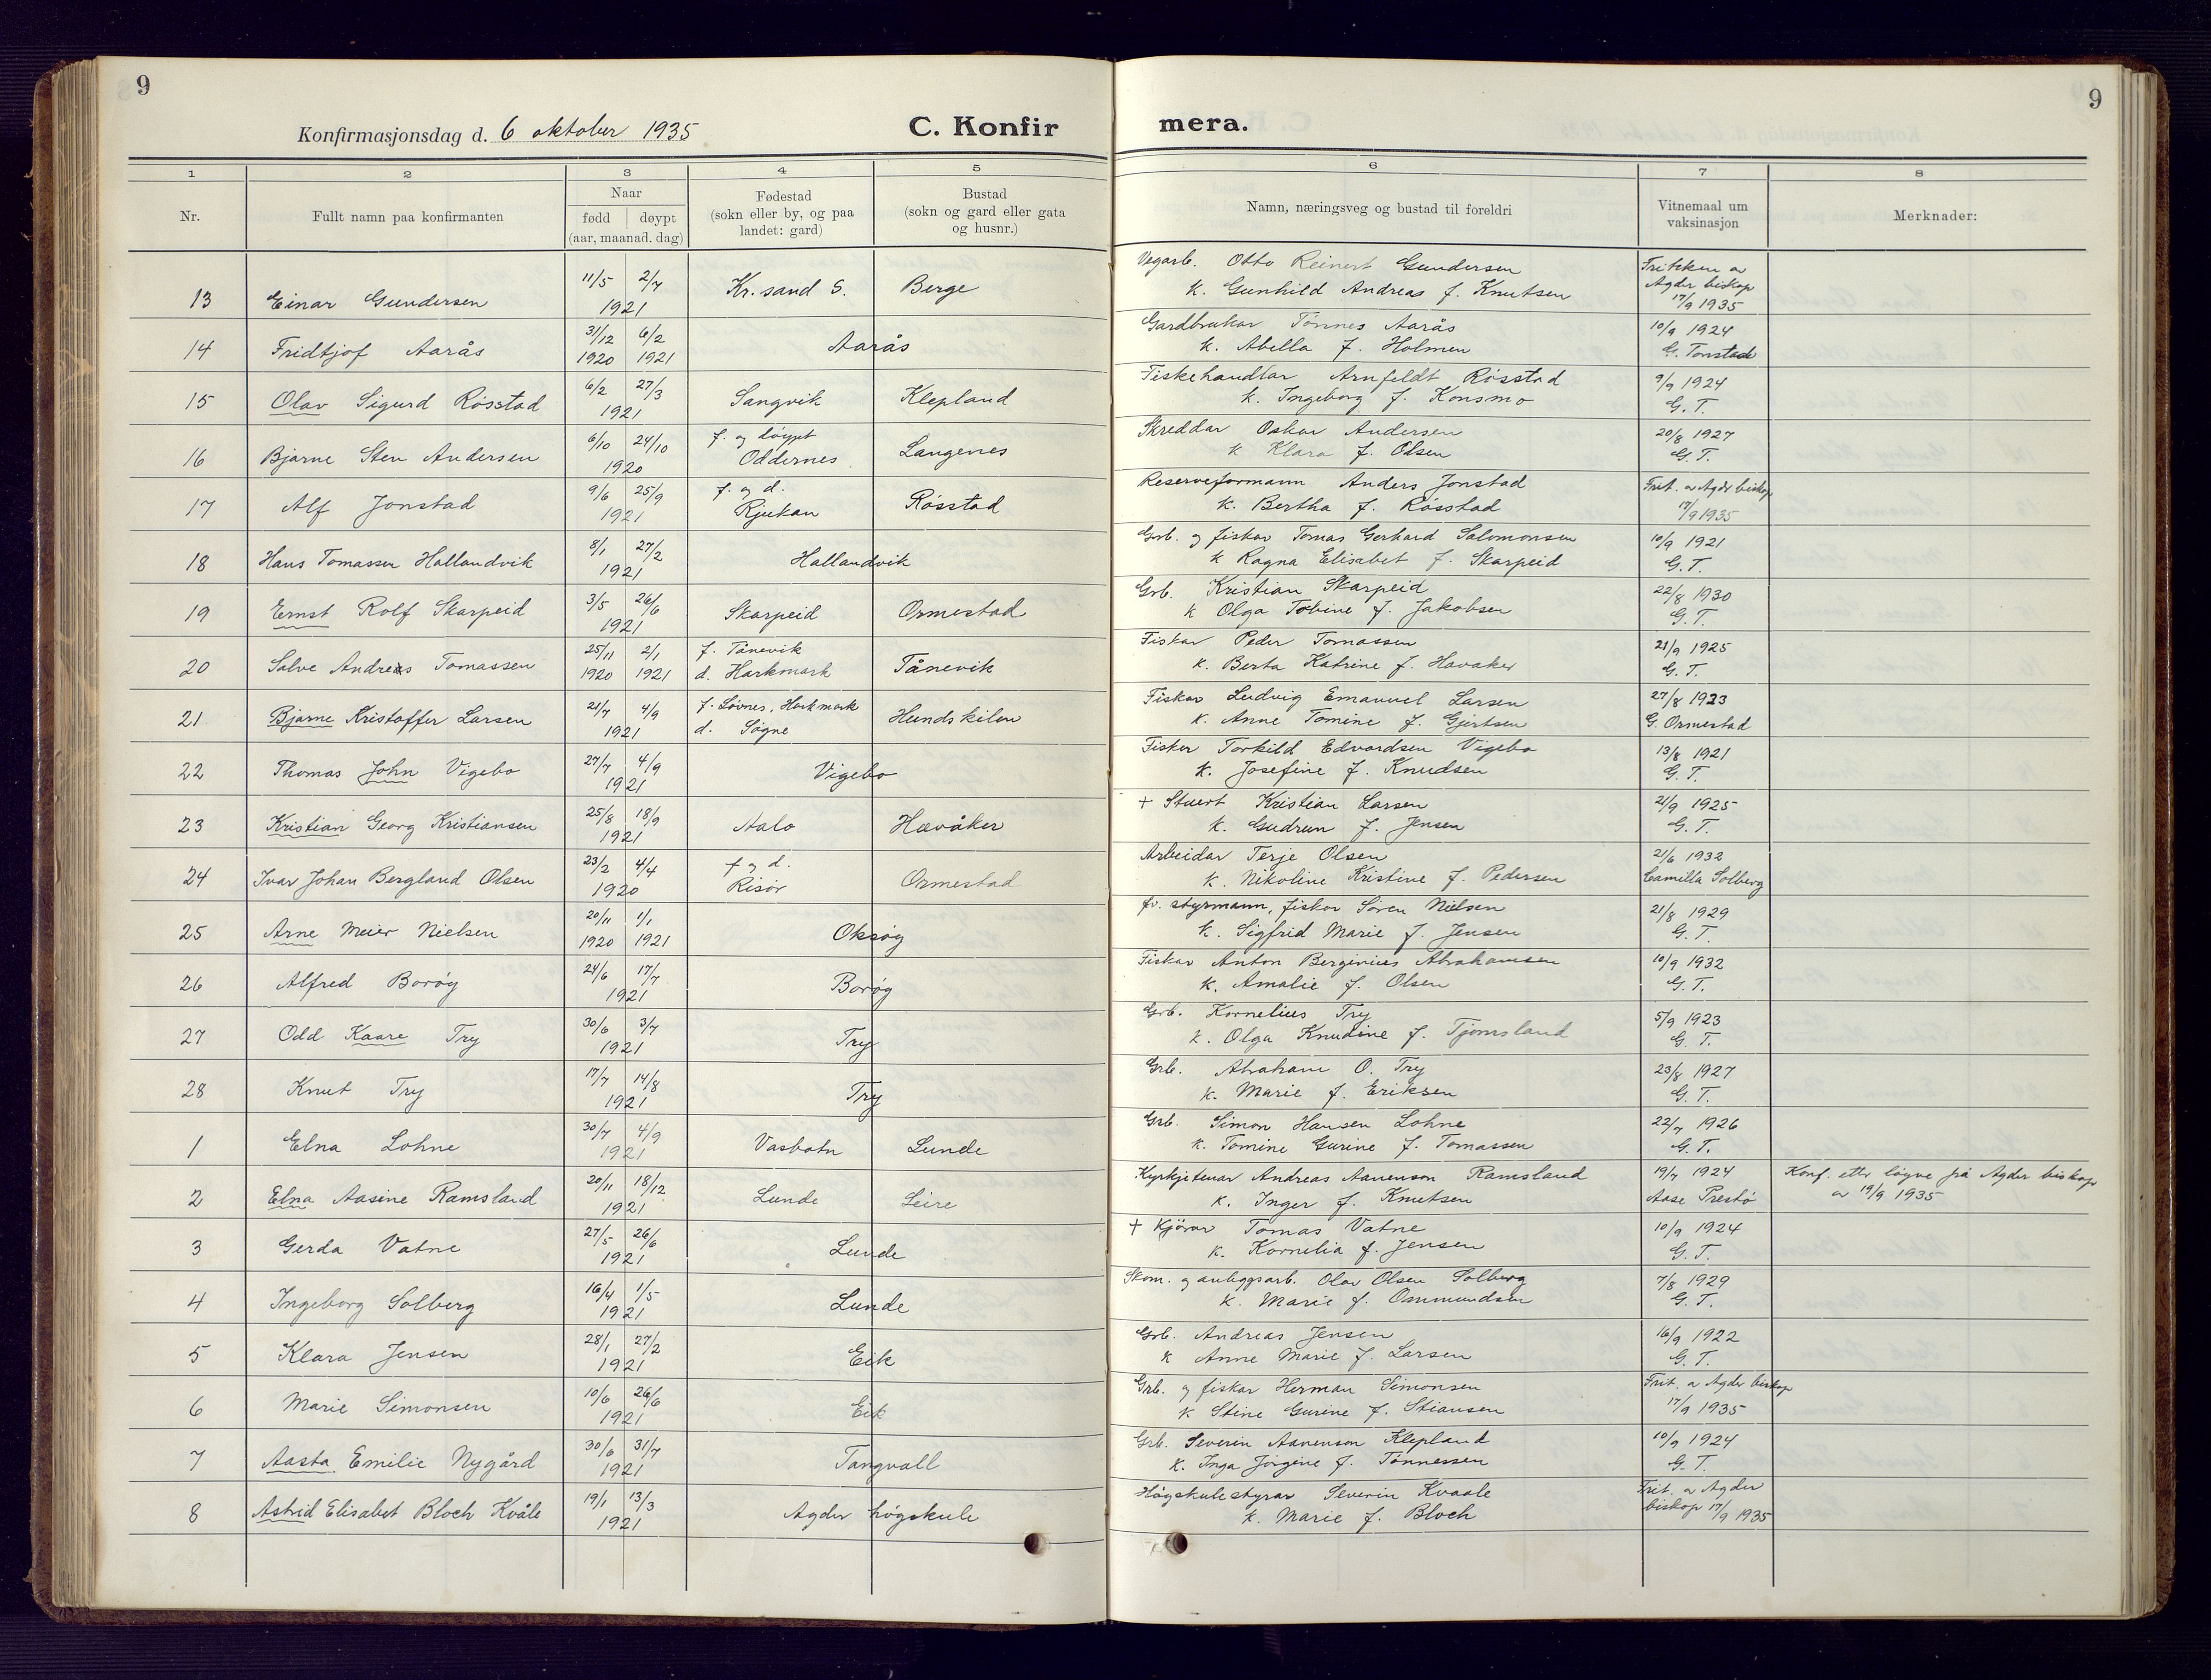 9
9
Konfirmasjonsdag d. 6 oktober 1935
C. Konfir
mera.
1 2 3 4 5 6 7 8
Nr.
Fullt namn paa konfirmanten
Naar
fødd døypt
(aar, maanad, dag)
Fødestad
(sokn eller by, og paa
landet: gard)
Bustad
(sokn og gard eller gata
og husnr.)
Namn, næringsveg og bustad til foreldri
Vitnemaal um
vaksinasjon
Merknader:
13 Einar Gundersen 11/5 2/7 1921 Kr.sand S. Berge
Vegarb. Otto Reinert Gundersen
k. Gunhild Andreas f. Knutsen
Friteken av
Agder biskop
17/9 1935
14 Fridtjof Aarås 31/12 1920 6/2 1921 Aarås
Gardbrukar Tønnes Aarås
k. Abella f. Holmen
10/9 1924
G. Tonstad
15 Olav Sigurd Røsstad 6/2 27/3 1921 Sangvik Klepland
Fiskehandlar Arnfeldt Røsstad
k. Ingeborg f. Konsmo
9/9 1924
G. T.
16 Bjarne Sten Andersen 6/10 24/10 1920 f. og døypt Oddernes Langenes
Skreddar Oskar Andersen
k Klara f. Olsen
20/8 1927
G. T.
17 Alf Jonstad 9/6 25/9 1921 f. og d. Rjukan Røsstad
Reserveformann Anders Jonstad
k. Bertha f. Røsstad
Frit. av Agder biskop
17/9 1935
18 Hans Tomassen Hallandvik 8/1 27/2 1921 Hallandvik
Grb. og fiskar Tomas Gerhard Salomonsen
k Ragna Elisabet f. Skarpeid
10/9 1921
G. T.
19 Ernst Rolf Skarpeid 3/5 26/6 1921 Skarpeid Ormestad
Grb. Kristian Skarpeid
k Olga Tobine f. Jakobsen
22/8 1930
G. T.
20 Salve Andreas Tomassen 25/11 1920 2/1 1921 f. Tånevik d. Harkmark Tånevik
Fiskar Peder Tomassen
k. Berta Katrine f. Havaker
21/9 1925
G. T.
21 Bjarne Kristoffer Larsen 21/7 4/9 1921 f. Løvnes, Harkmark d. Søgne Hundskilen
Fiskar Ludvig Emanuel Larsen
k. Anne Tomine f. Gjertsen
27/8 1923
G. Ormestad
22 Thomas John Vigebo 27/7 4/9 1921 Vigebo
Fisker Torkild Edvardsen Vigebo
k. Josefine f. Knudsen
13/8 1921
G. T.
23 Kristian Georg Kristiansen 25/8 18/9 1921 Aalo Havåker
+ Stuert Kristian Larsen
k. Gudrun f. Jensen
21/9 1925
G. T.
24 Ivar Johan Bergland Olsen 23/2 4/4 1920 f og d. Risør Ormestad
Arbeidar Terje Olsen
k. Nikoline Kristine f. Pedersen
21/6 1932
Camilla Solberg
25 Arne Meier Nielsen 20/11 1920 1/1 1921 Oksøy
fv. styrmann, fiskar Søren Nielsen
k. Sigfrid Marie f. Jensen
21/8 1929
G. T.
26 Alfred Borøy 24/6 17/7 1921 Borøy
Fiskar Anton Berginius Abrahamsen
k. Amalie f. Olsen
10/9 1932
G. T.
27 Odd Kaare Try 30/6 3/7 1921 Try
Grb. Kornelius Try
k. Olga Knudine f. Tjomsland
5/9 1923
G. T.
28 Knut Try 17/7 14/8 1921 Try
Grb. Abraham O. Try
k. Marie f. Eriksen
23/8 1927
G. T.
1 Elna Lohne 30/7 4/9 1921 Vasbotn Lunde
Grb. Simon Hansen Lohne
k. Tomine Gurine f. Tomassen
22/7 1926
G. T.
2 Elna Aasine Ramsland 20/11 18/12 1921 Lunde Leire
Kyrkjetenar Andreas Aanenson Ramsland
k. Inger f. Knutsen
19/7 1924
Aase Prestø
Konf. etter løyve frå Agder biskop
av 19/9 1935
3 Gerda Vatne 27/5 26/6 1921 Lunde
+ Kjørar Tomas Vatne
k. Kornelia f. Jensen
10/9 1924
G. T.
4 Ingeborg Solberg 16/4 1/5 1921 Lunde
Skom. og anleggsarb. Olav Olsen Solberg
k. Marie f. Ommundsen
7/8 1929
G. T.
5 Klara Jensen 28/1 27/2 1921 Eik
Grb. Andreas Jensen
k Anne Marie f. Larsen
16/9 1922
G. T.
6 Marie Simonsen 10/6 26/6 1921 Eik
Grb. og fiskar Herman Simonsen
k Stine Gurine f. Stiansen
Frit. av Agder biskop
17/9 1935
7 Aasta Emilie Nygård 30/6 31/7 1921 Tangvall
Grb. Severin Aanenson Klepland
k. Inga Jorgine f. Tønnessen
10/9 1924
G. T.
8 Astrid Elisabet Bloch Kvåle 19/1 13/3 1921 Agder høgskule
Høgskulestyrar Severin Kvaale
k. Marie f. Bloch
Frit. av Agder
biskop 17/9 1935